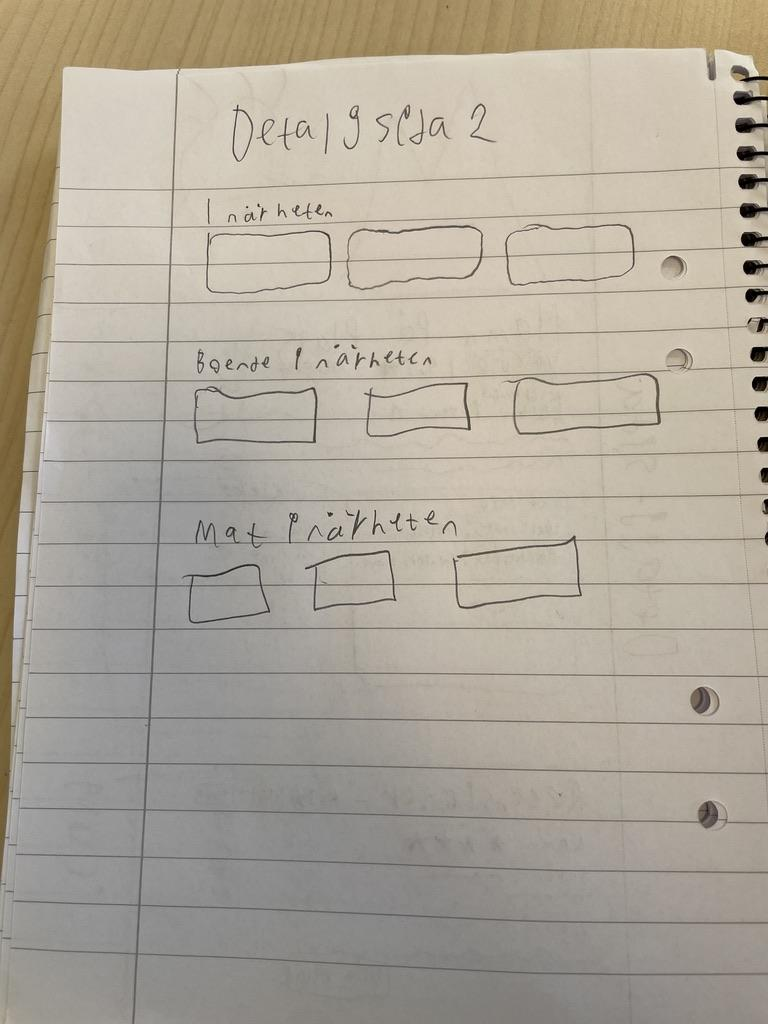 Detaljsida 2
I närheten
Boende i närheten
Mat i närheten